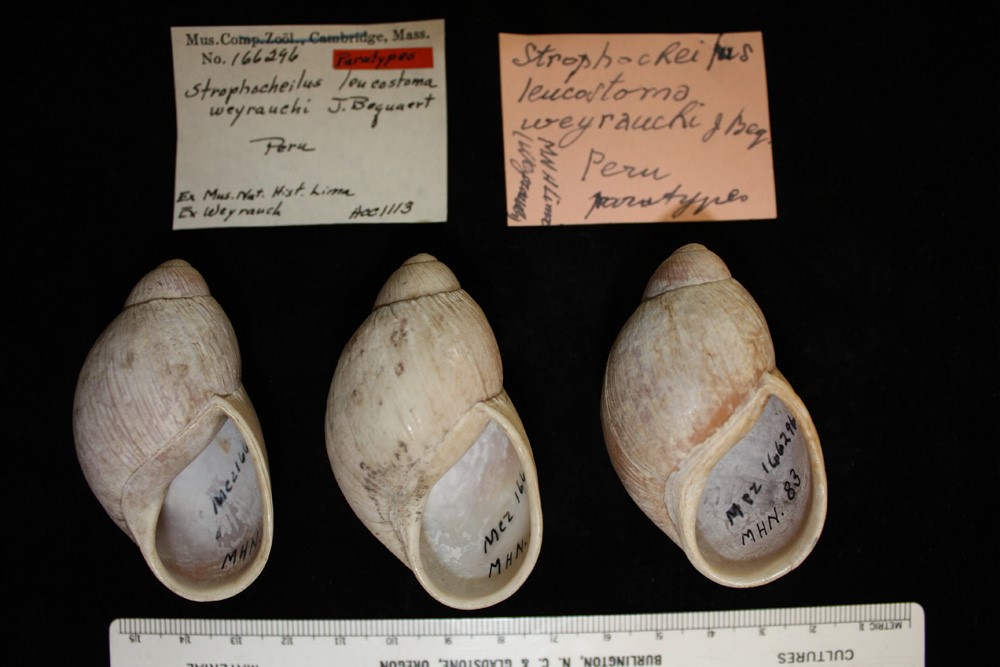 Mus.Comp.Zoöl., Cambridge, Mass.
No. 166296 Paratypes
Strophocheilus leucostoma
weyrauchi J. Bequaert
Peru
Ex Mus. Nat. Hist. Lima
Ex Weyrauch Acc 1113
Strophocheilus
leucostoma
weyrauchi J Beq.
Peru
paratypes
MNH Lima
MCZ 166
MHN.
MCZ 166
MHN.
MCZ 166296
MHN. 83
METRIC 1 2 3 4 5 6 7 8 9 10 11 12 13 14 15
CULTURES
BURLINGTON, N. C. & GLADSTONE, OREGON